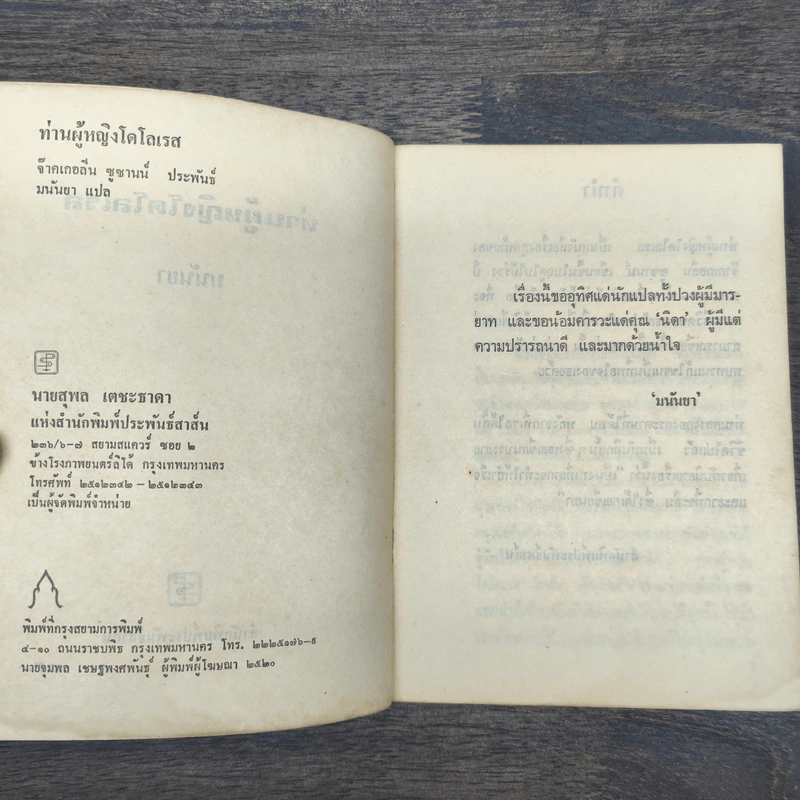 ท่านผู้หญิงโดโลเรส
จ๊าคเกอลีน ซูซานน์ ประพันธ์
มนันยา แปล
นายสุพล เตชะธาดา
แห่งสำนักพิมพ์ประพันธ์สาส์น
๒๓๖/๖-๗ สยามสแควร์ ซอย ๒
ข้างโรงภาพยนตร์ลิโด้ กรุงเทพมหานคร
โทรศัพท์ ๒๕๑๒๓๔๒ – ๒๕๑๒๓๔๓
เป็นผู้จัดพิมพ์จำหน่าย
พิมพ์ที่กรุงสยามการพิมพ์
๔-๑๐ ถนนราชบพิธ กรุงเทพมหานคร โทร. ๒๒๒๕๑๗๖-๙
นายจุมพล เชษฐพงศพันธุ์ ผู้พิมพ์ผู้โฆษณา ๒๕๒๐
เรื่องนี้ขออุทิศแด่นักแปลทั้งปวงผู้มีมาร-
ยาท และขอน้อมคารวะแด่คุณ ‘นิดา’ ผู้มีแต่
ความปรารถนาดี และมากด้วยน้ำใจ
‘มนันยา’